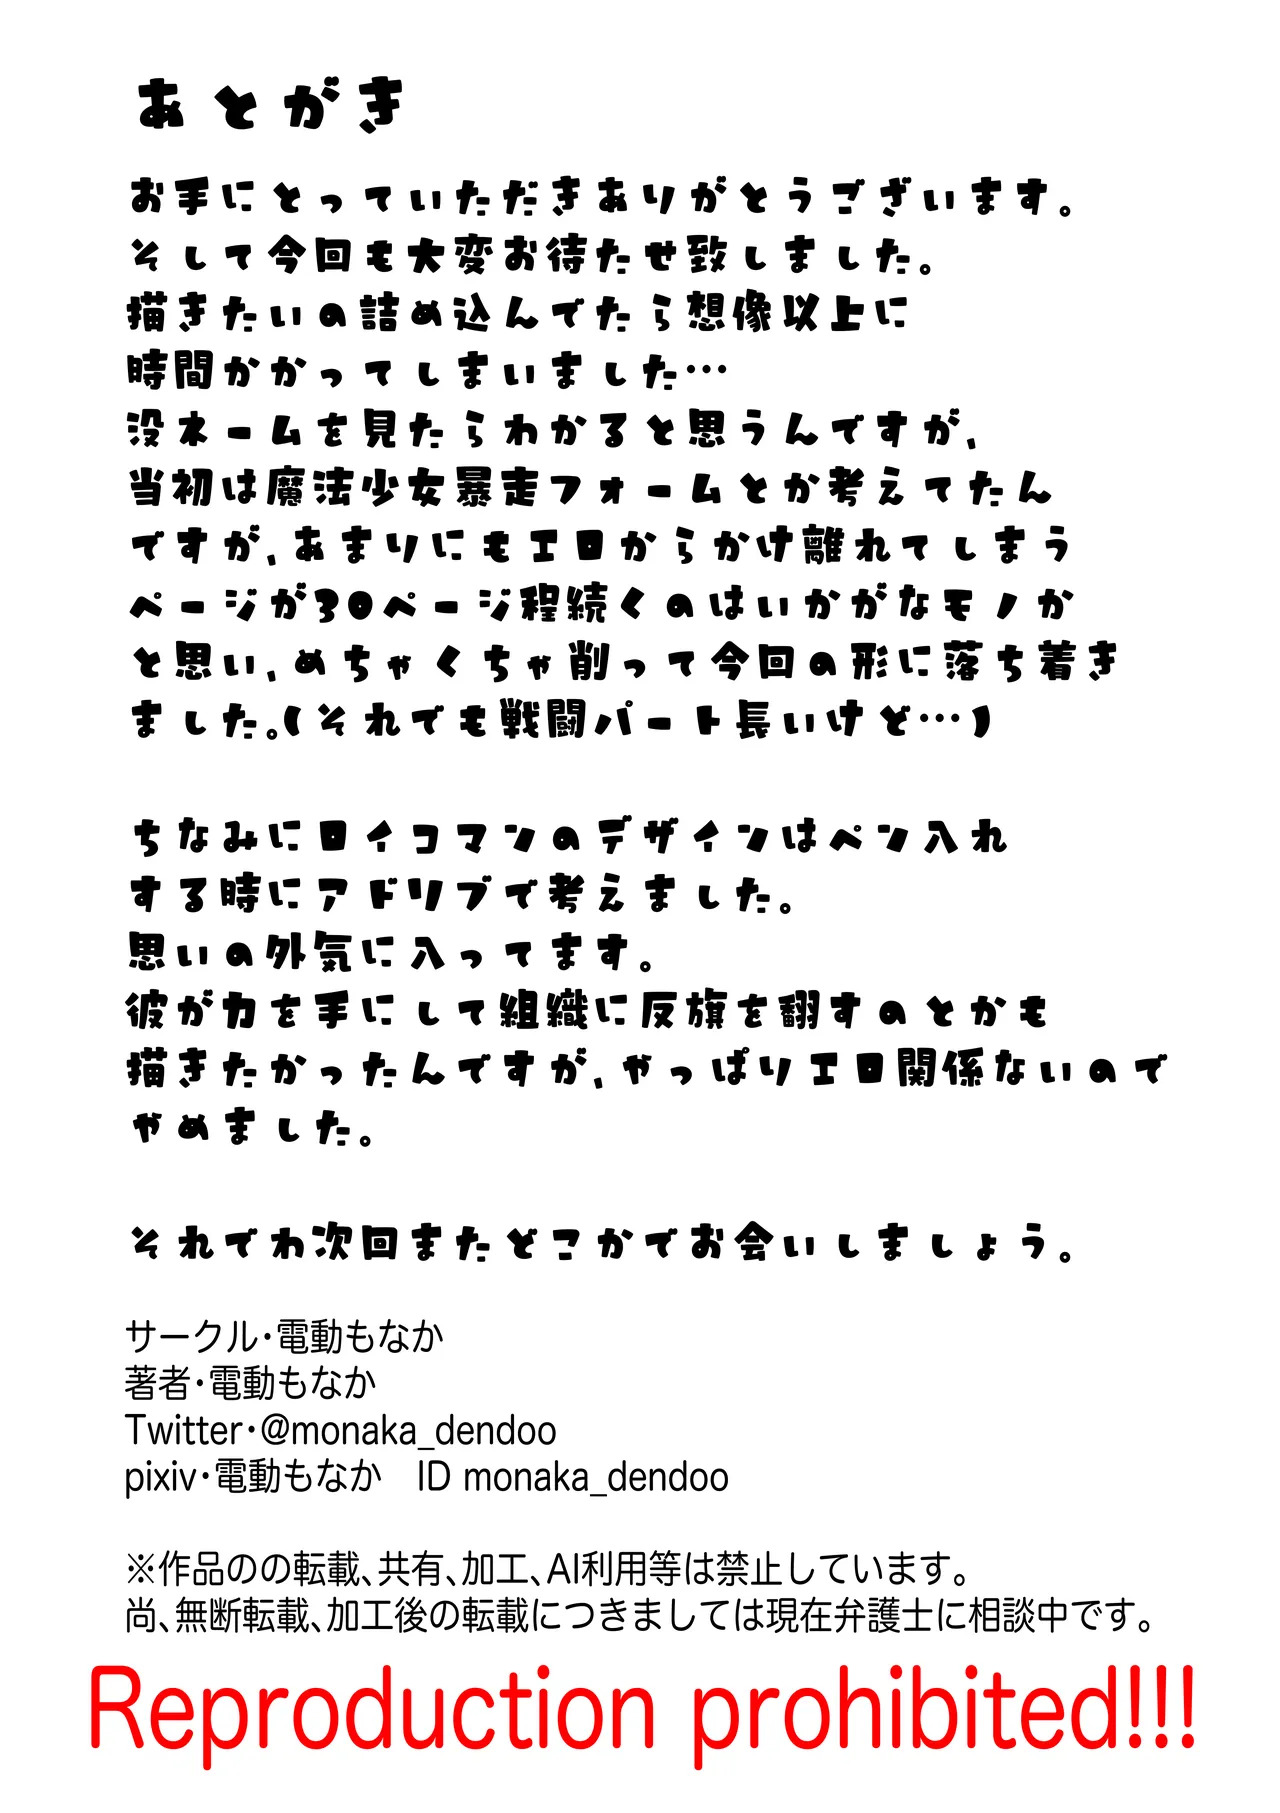 あとがき
お手にとっていただきありがとうございます。
そして今回も大変お待たせ致しました。
描きたいの詰め込んでたら想像以上に
時間かかってしまいました…
没ネームを見たらわかると思うんですが、
当初は魔法少女暴走フォームとか考えてたん
ですが、あまりにもエロからかけ離れてしまう
ページが30ページ程続くのはいかがなモノか
と思い、めちゃくちゃ削って今回の形に落ち着き
ました。(それでも戦闘パート長いけど…)
ちなみにロイコマンのデザインはペン入れ
する時にアドリブで考えました。
思いの外気に入ってます。
彼が力を手にして組織に反旗を翻すのとかも
描きたかったんですが、やっぱりエロ関係ないので
やめました。
それでわ次回またどこかでお会いしましょう。
サークル・電動もなか
著者・電動もなか
Twitter・@monaka_dendoo
pixiv・電動もなか　ID monaka_dendoo
※作品のの転載、共有、加工、AI利用等は禁止しています。
尚、無断転載、加工後の転載につきましては現在弁護士に相談中です。
Reproduction prohibited!!!